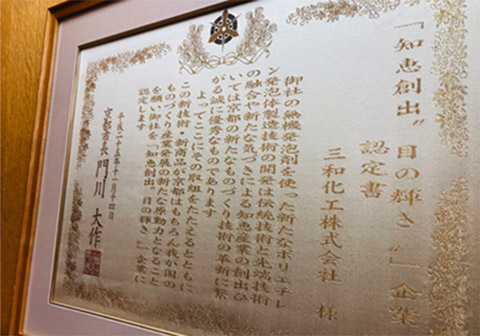 「知恵創出〝目の輝き〟」企業
認定書
三和化工株式会社 様
御社の無機発泡剤を使った新たなポリエチレ
ン発泡体製造技術の開発は伝統技術と先端技術
の融合や新たな気づきによる知恵産業の創出ひ
いては京都の新たなものづくり技術の革新に繋
がる誠に優秀なものであります
よってここにその取組をたたえるとともに
この新技術・新商品が京都はもちろん我が国の
ものづくり産業発展の新たな原動力となること
を願い御社を「知恵創出〝目の輝き〟」企業に
認定します
平成二十五年十一月十四日
京都市長 門川 大作